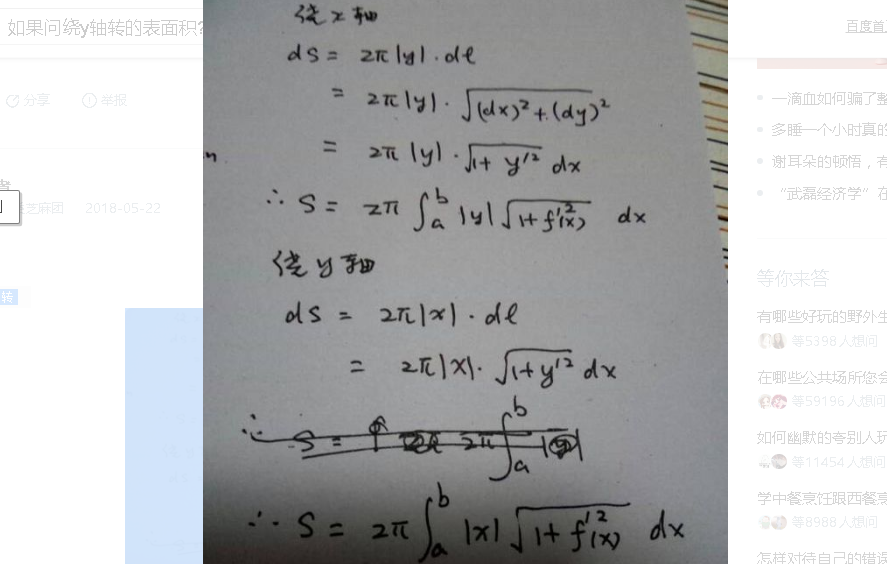 如果问绕y轴转的表面积?
百度首
分享
举报
芝麻团 2018-05-22
转
绕x轴
dS = 2π|y|·dl
= 2π|y|·√((dx)²+(dy)²)
= 2π|y|·√(1+y'²) dx
∴ S = 2π∫ₐᵇ |y|√(1+f'²(x)) dx
绕y轴
dS = 2π|x|·dl
= 2π|x|·√(1+y'²) dx
∴ S = 2π∫ₐᵇ
∴ S = 2π∫ₐᵇ |x|√(1+f'²(x)) dx
一滴血如何骗了
多睡一个小时真的
谢耳朵的顿悟，有
“武磊经济学”在
等你来答
有哪些好玩的野外生
等5398人想问
在哪些公共场所您会
等59196人想问
如何幽默的夸别人玩
等11454人想问
学中餐烹饪跟西餐烹
等8988人想问
怎样对待自己的错误